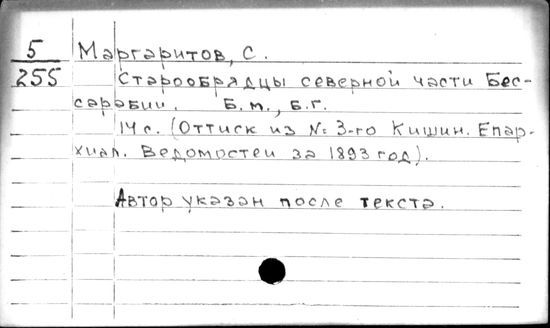 5 Маргаритов, С.
255 Старообрядцы северной части Бес-
сарабии. Б.м., б.г.
14 с. (Оттиск из № 3-го Кишин. Епар-
хиал. Ведомостей за 1893 год).
Автор указан после текста.